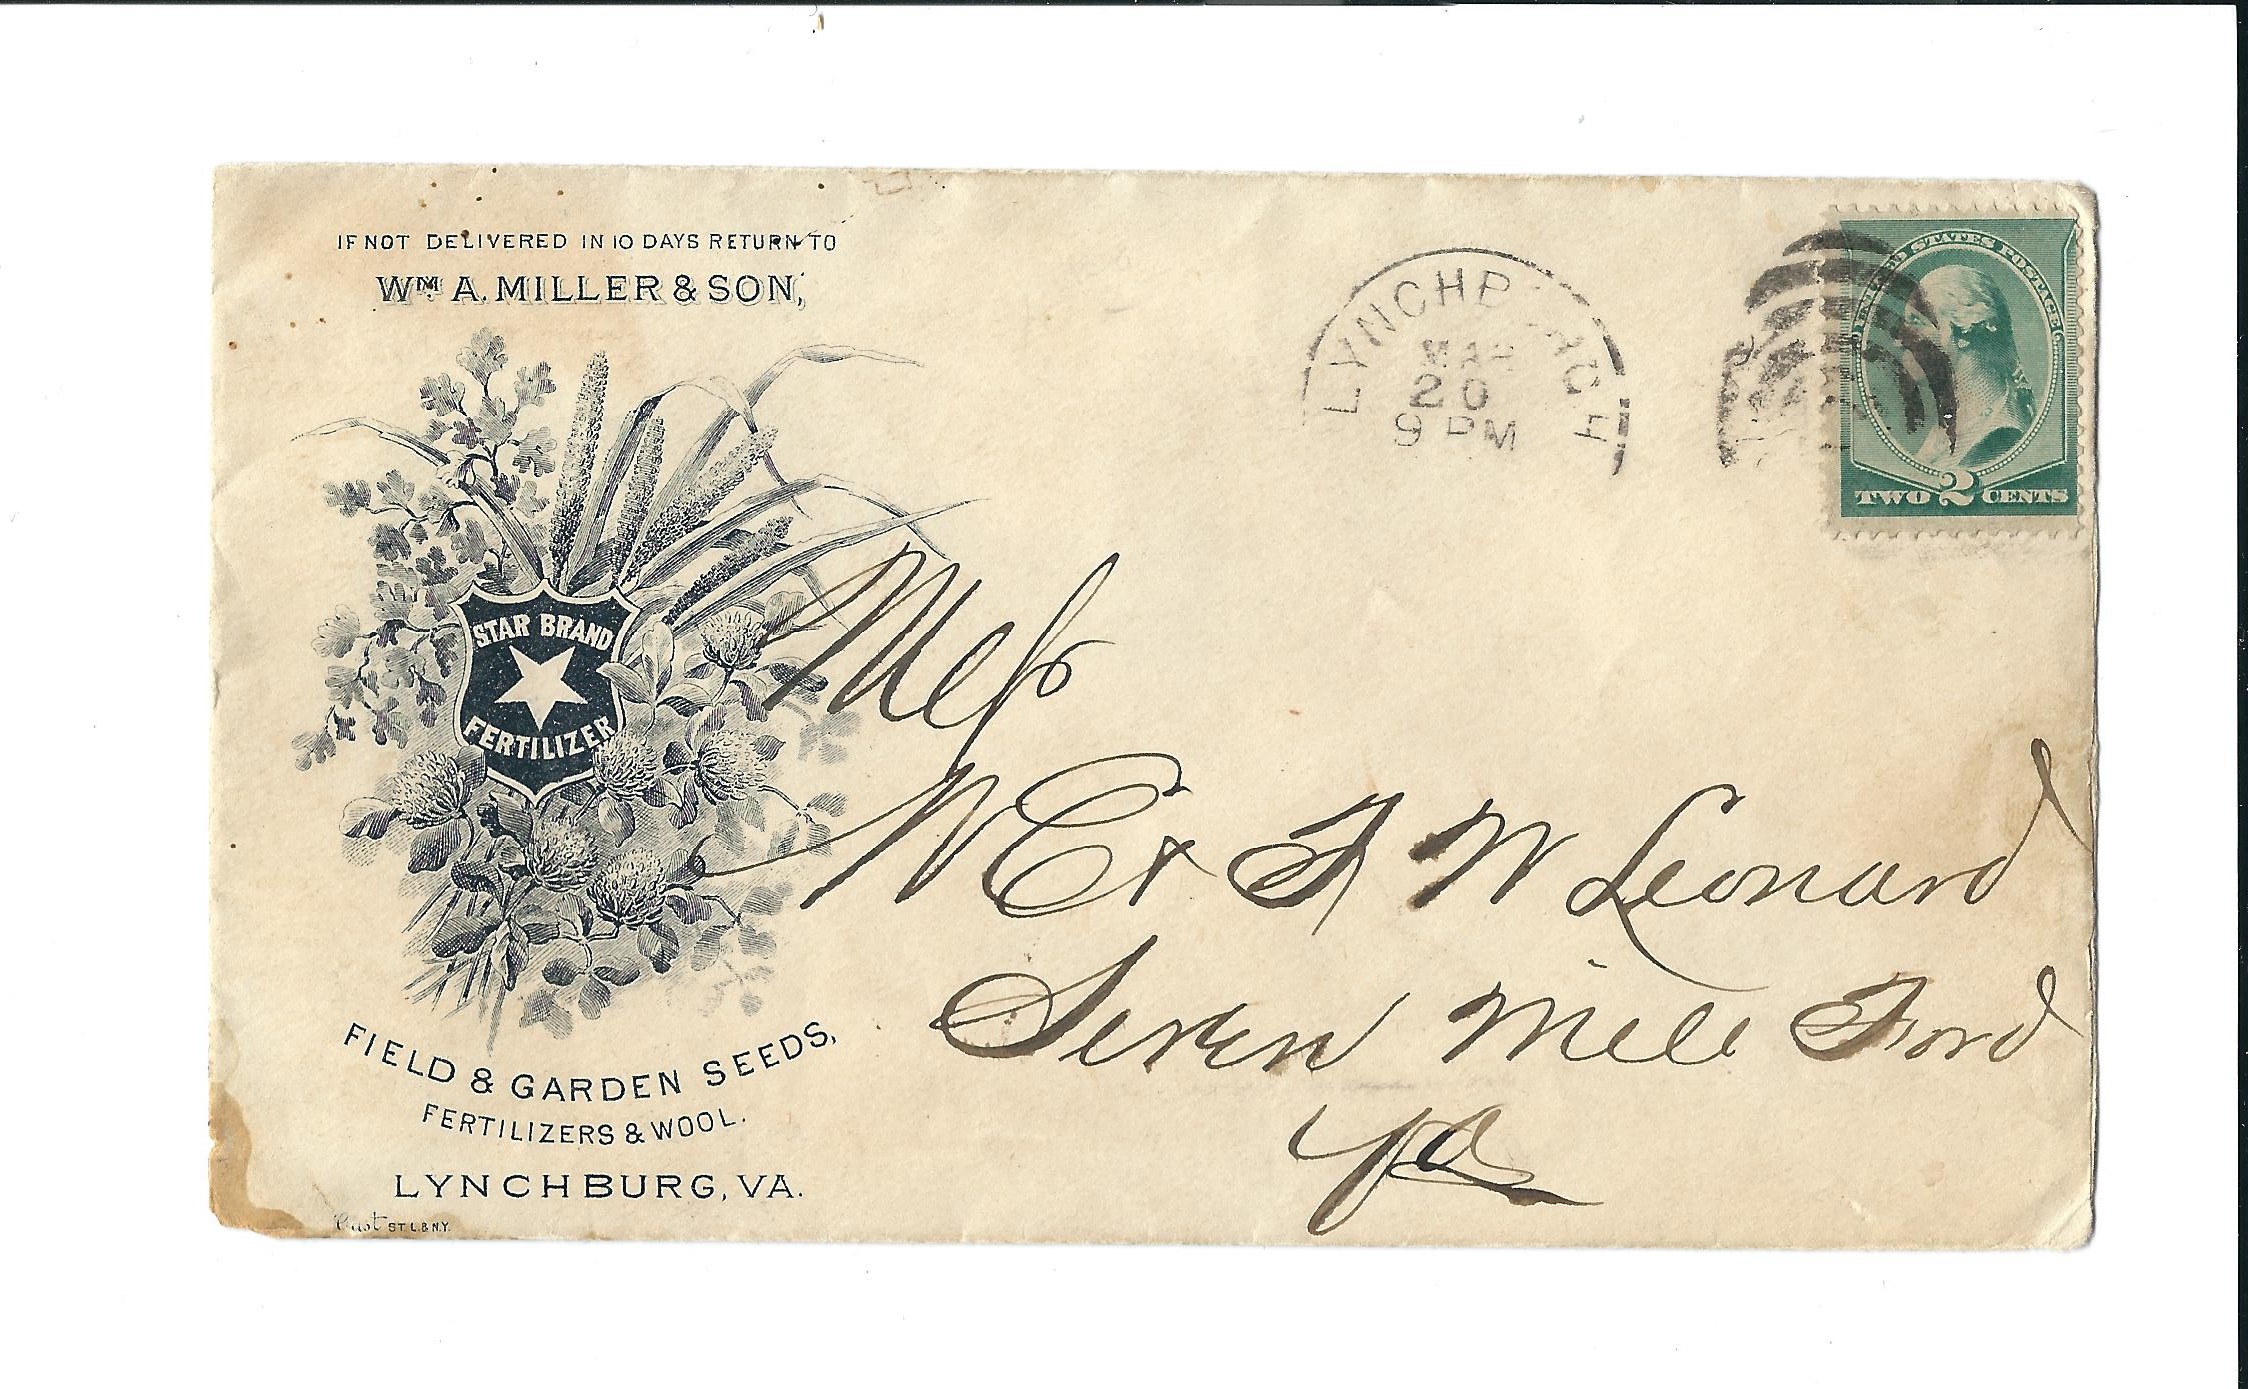 IF NOT DELIVERED IN 10 DAYS RETURN TO
WM A. MILLER & SON,
STAR BRAND
FERTILIZER
FIELD & GARDEN SEEDS,
FERTILIZERS & WOOL.
LYNCHBURG, VA.
ST L & N.Y.
LYNCHB
MAR
20
9 PM
UNITED STATES POSTAGE
TWO 2 CENTS
Mess
& W Leonard
Seven Mile Ford
Va